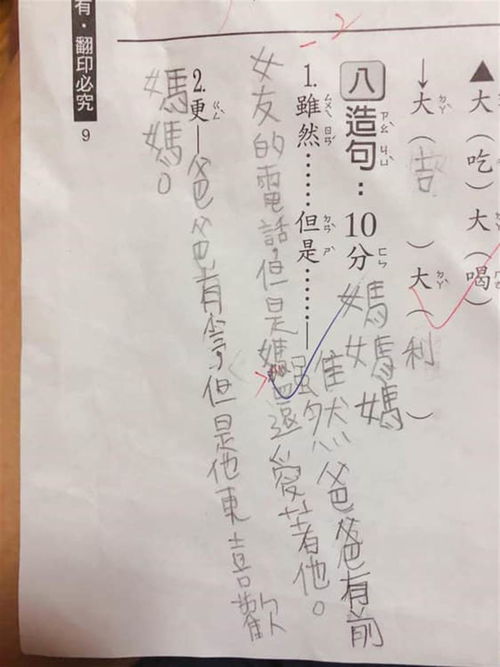 ▲大(吃)大(喝)
↓大(吉)大(利)
八 造句：10分
媽媽媽
1.雖然……但是……—雖然爸爸有前
女友的電話,但是媽還愛著他。
2.更—爸爸有但是他東喜歡
媽媽。
-2
有・翻印必究
9